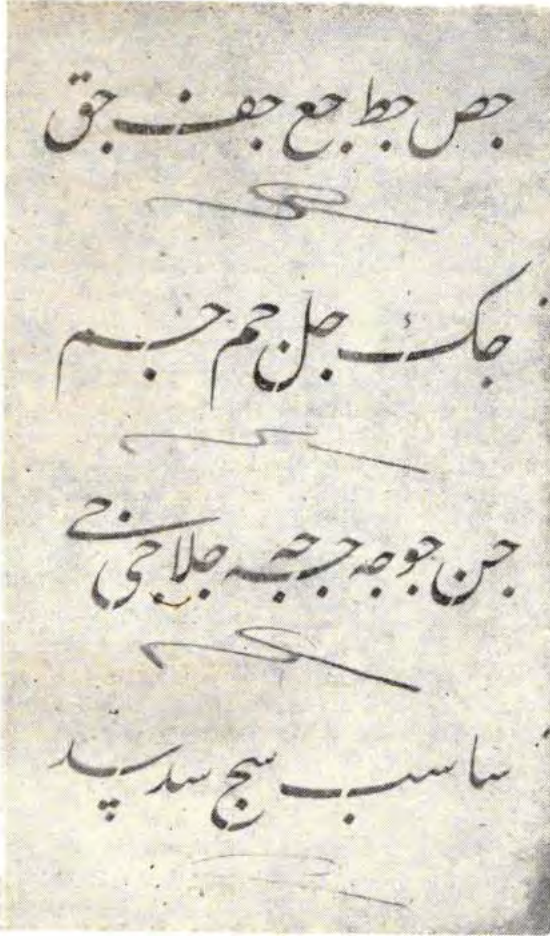 جص جط جع جف جق
جک جل جم جم
جن جو جه جه جه جلا جی جے
سا سب سج سد سد